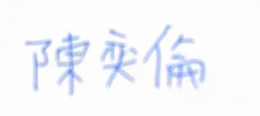 陳奕倫